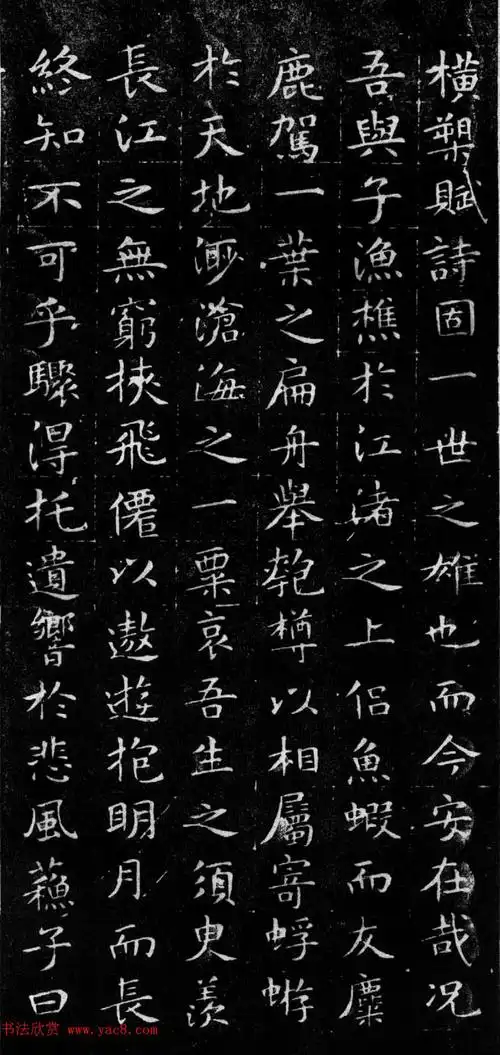 橫槊賦詩固一世之雄也而今安在哉况
吾與子漁樵於江渚之上侣魚蝦而友麋
鹿駕一葉之扁舟舉匏樽以相屬寄蜉蝣
於天地渺滄海之一粟哀吾生之須臾羨
長江之無窮挾飛僊以遨遊抱明月而長
終知不可乎驟得托遺響於悲風蘓子曰
书法欣赏 www.yac8.com